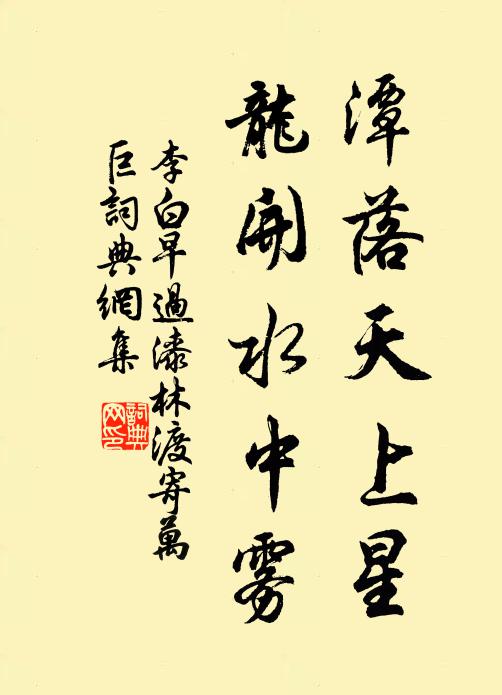 潭落天上星
龍開水中霧
李白早過漆林渡寄萬
巨詞典網集
詞典
网印